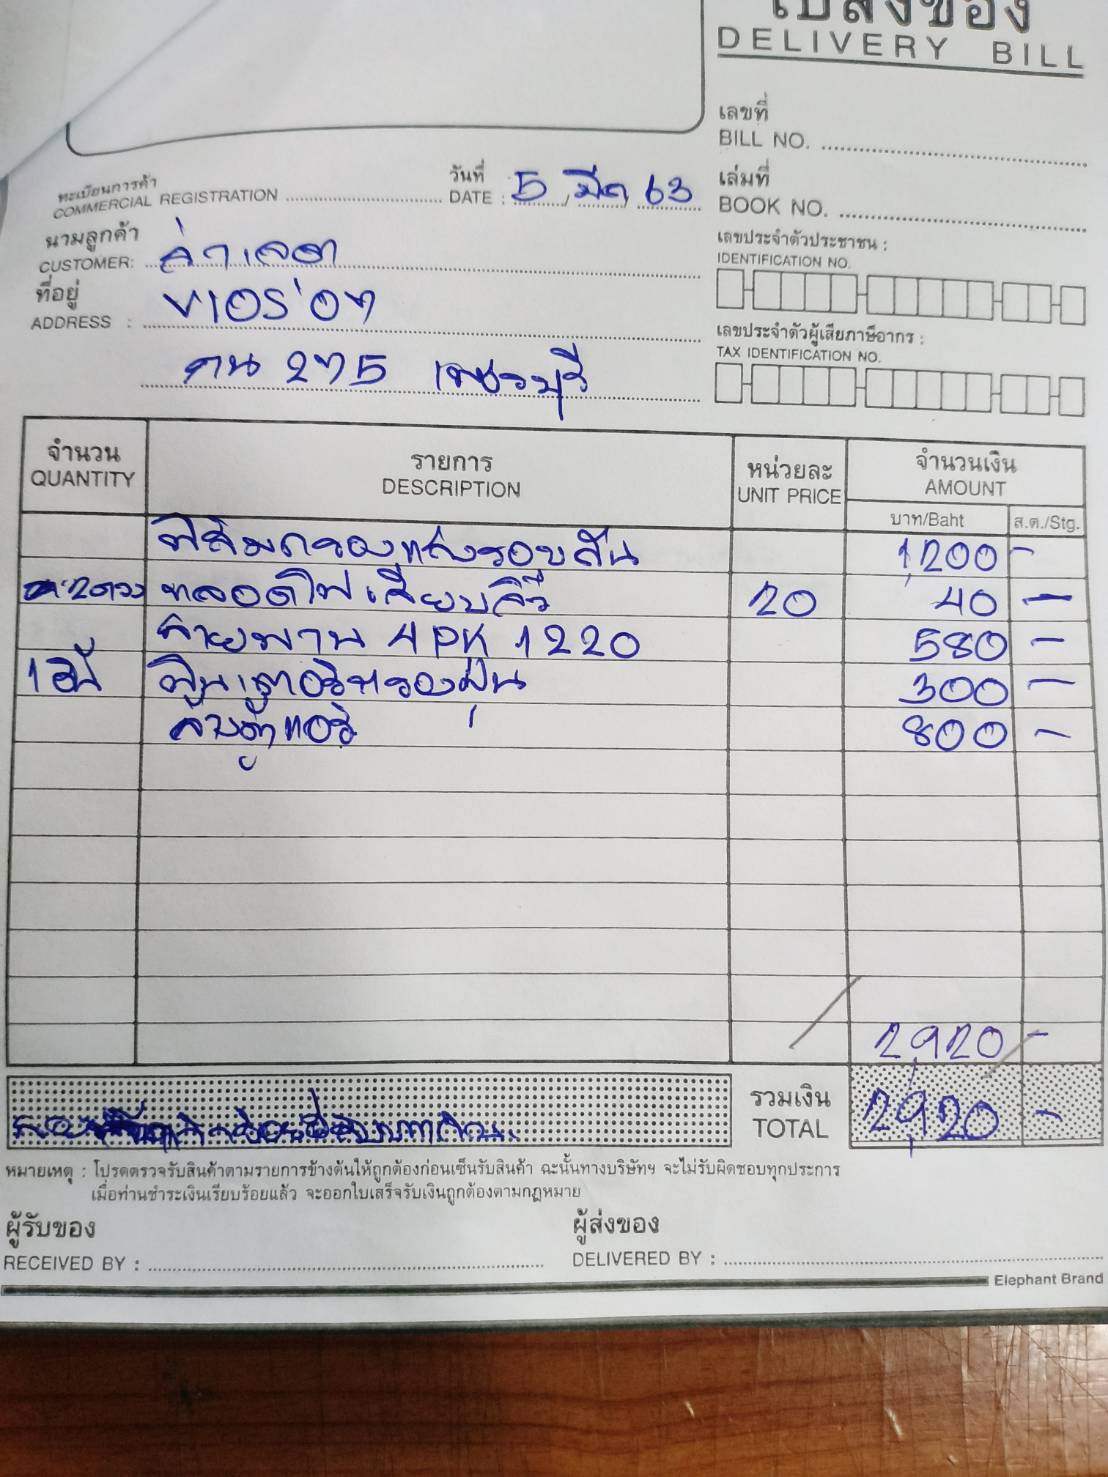 ใบส่งของ
DELIVERY BILL
เลขที่
BILL NO.
ทะเบียนการค้า
COMMERCIAL REGISTRATION
วันที่
DATE : 5 มีค 63
เล่มที่
BOOK NO.
นามลูกค้า
CUSTOMER:
เลขประจำตัวประชาชน :
IDENTIFICATION NO.
ที่อยู่
ADDRESS :
เลขประจำตัวผู้เสียภาษีอากร :
TAX IDENTIFICATION NO.
275 เพชรบุรี
จำนวน รายการ หน่วยละ จำนวนเงิน
QUANTITY DESCRIPTION UNIT PRICE AMOUNT
บาท/Baht ส.ต./Stg.
ฟิล์มกรองแสงรอบคัน 1,200 -
2ดวง หลอดไฟเสียบ 20 40 -
สายพาน 4PK 1220 580 -
1 ฟิลเตอร์กรองฝุ่น 300 -
ล้างตู้แอร์ 800 -
2,920 -
รวมเงิน
TOTAL 2,920 -
หมายเหตุ : โปรดตรวจรับสินค้าตามรายการข้างต้นให้ถูกต้องก่อนเซ็นรับสินค้า ฉะนั้นทางบริษัทฯ จะไม่รับผิดชอบทุกประการ
เมื่อท่านชำระเงินเรียบร้อยแล้ว จะออกใบเสร็จรับเงินถูกต้องตามกฎหมาย
ผู้รับของ ผู้ส่งของ
RECEIVED BY : DELIVERED BY :
Elephant Brand